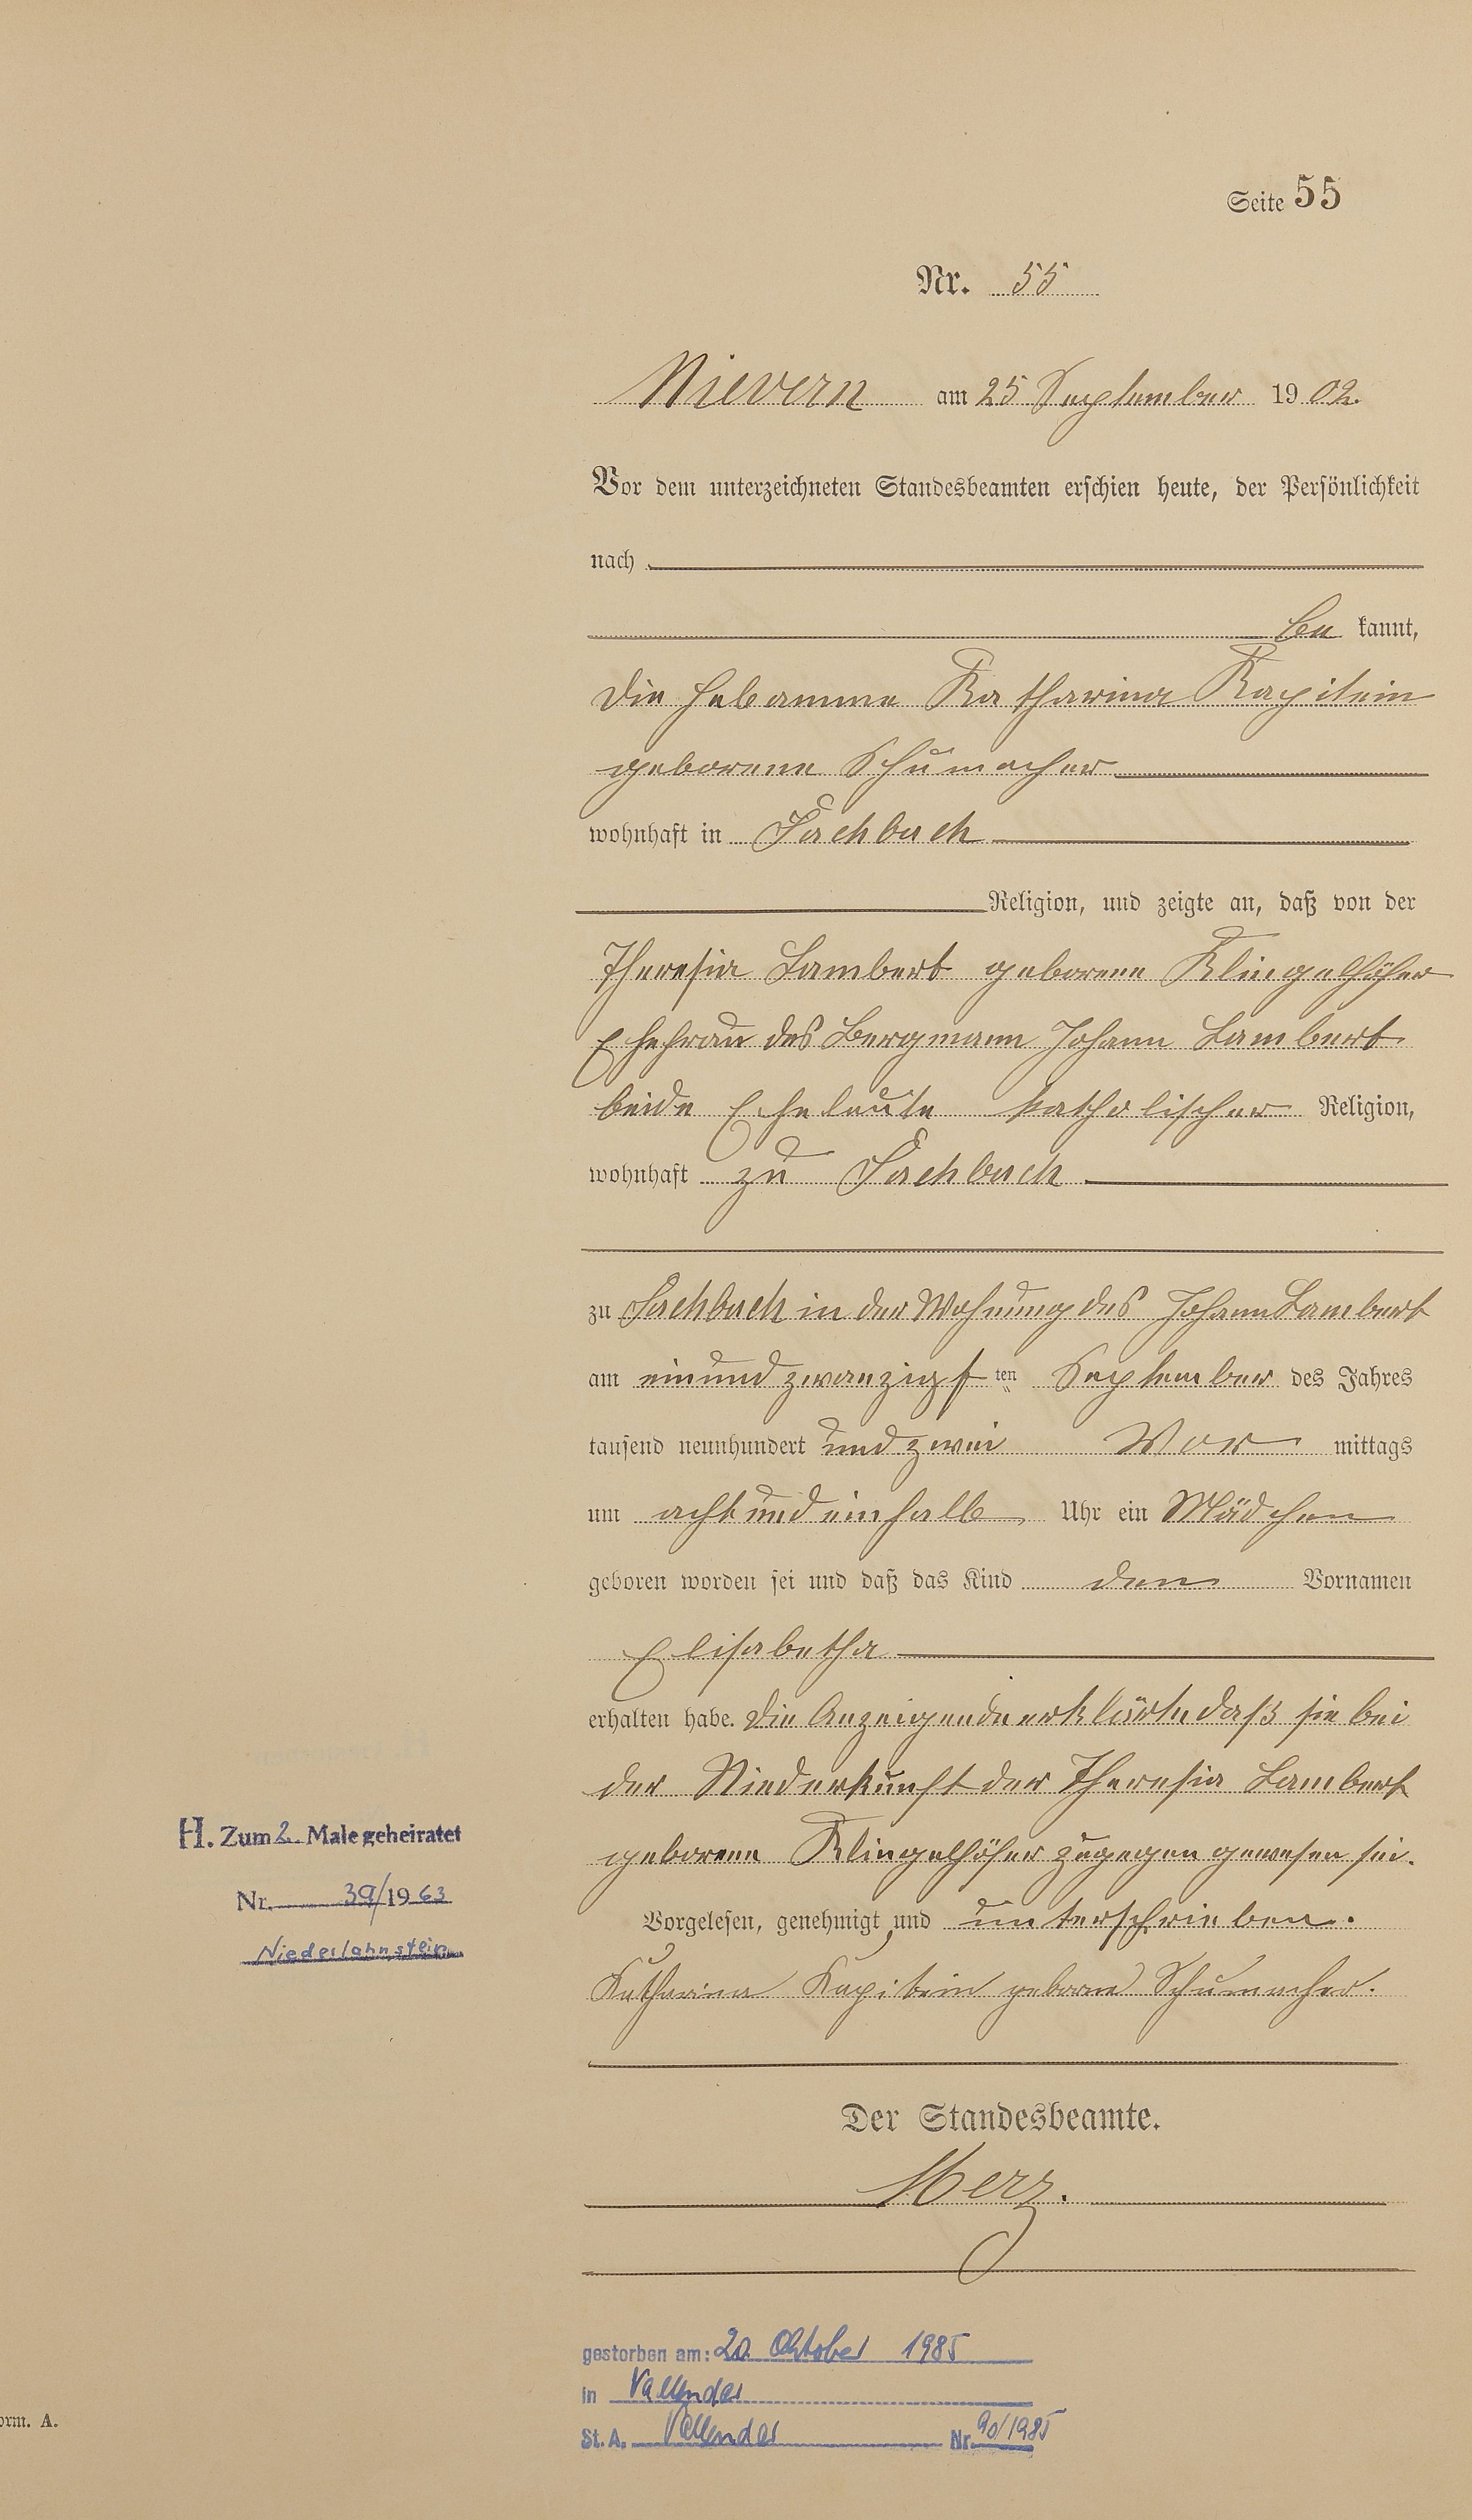 Seite 55
Nr. 55
Nievern am 25 September 1902.
Vor dem unterzeichneten Standesbeamten erschien heute, der Persönlichkeit
nach
be kannt,
die Hebamme Katharina Kapitein
geborene Schumacher
wohnhaft in Fachbach
Religion, und zeigte an, daß von der
Theresia Lambert geborene Klingelhöfer
Ehefrau des Bergmann Johann Lambert
beide Eheleute katholischer Religion,
wohnhaft zu Fachbach
zu Fachbach in der Wohnung des Johann Lambert
am einundzwanzigsten September des Jahres
tausend neunhundert und zwei Vor mittags
um acht und ein halb Uhr ein Mädchen
geboren worden sei und daß das Kind den Vornamen
Elisabetha
erhalten habe. Die Anzeigende erklärte daß sie bei
der Niederkunft der Theresia Lambert
geborene Klingelhöfer zugegen gewesen sei.
Vorgelesen, genehmigt und unterschrieben.
Katharina Kapitein geborne Schumacher.
Der Standesbeamte.
Merz.
H. Zum 2. Male geheiratet
Nr. 39/1963
Niederlahnstein
gestorben am: 20. Oktober 1985
in Vallendar
St. A. Vallendar Nr. 90/1985
orm. A.